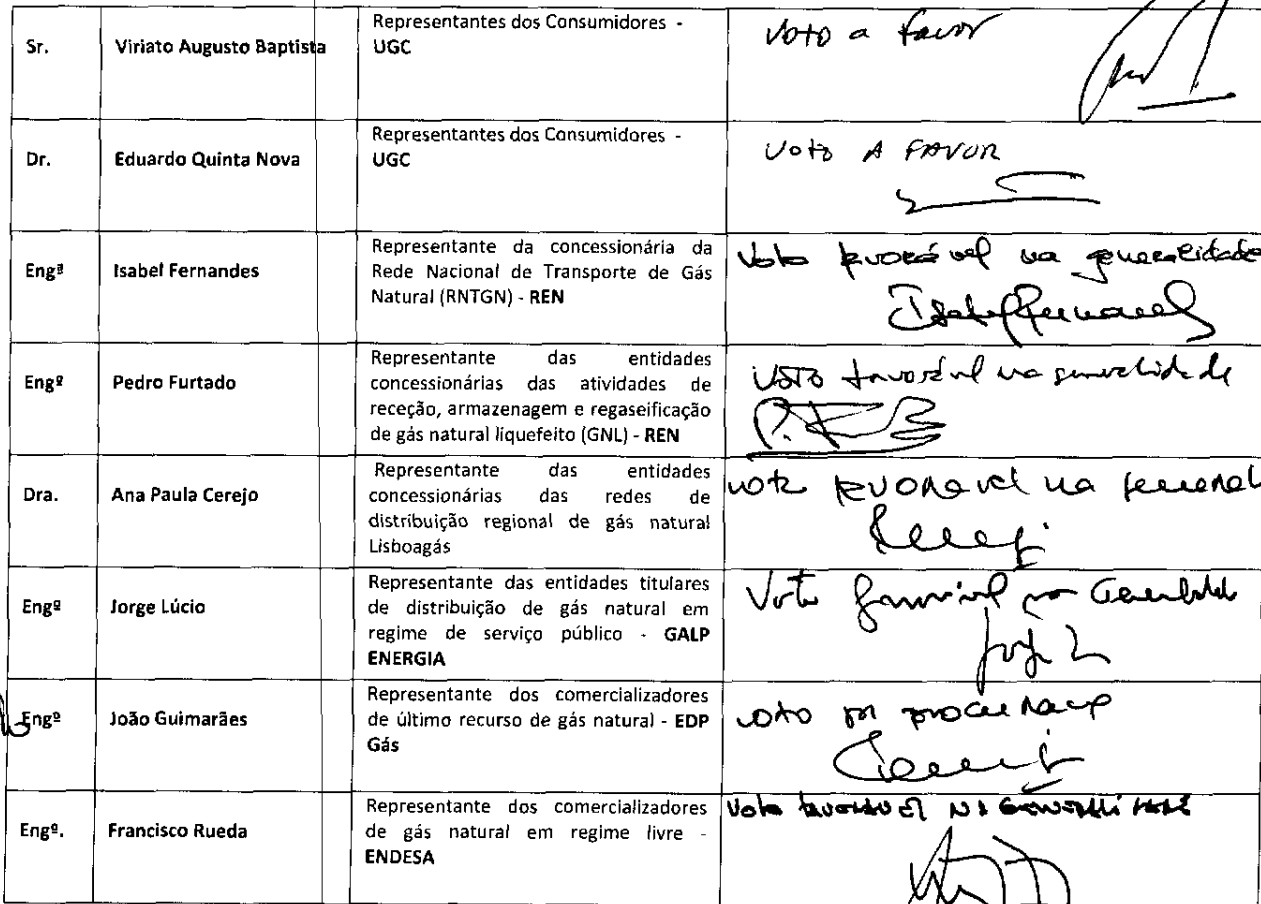 Sr.
Viriato Augusto Baptista
Representantes dos Consumidores -
UGC
Voto a favor
Dr.
Eduardo Quinta Nova
Representantes dos Consumidores -
UGC
Voto A FAVOR
Engª
Isabel Fernandes
Representante da concessionária da
Rede Nacional de Transporte de Gás
Natural (RNTGN) - REN
Voto favorável na generalidade
Isabel Fernandes
Engº
Pedro Furtado
Representante das entidades
concessionárias das atividades de
receção, armazenagem e regaseificação
de gás natural liquefeito (GNL) - REN
Voto favorável na generalidade
Dra.
Ana Paula Cerejo
Representante das entidades
concessionárias das redes de
distribuição regional de gás natural
Lisboagás
voto favoravel na
Engº
Jorge Lúcio
Representante das entidades titulares
de distribuição de gás natural em
regime de serviço público - GALP
ENERGIA
Voto favorável na Generalidade
Engº
João Guimarães
Representante dos comercializadores
de último recurso de gás natural - EDP
Gás
voto por
Engº.
Francisco Rueda
Representante dos comercializadores
de gás natural em regime livre -
ENDESA
Voto favoravel na generalidade